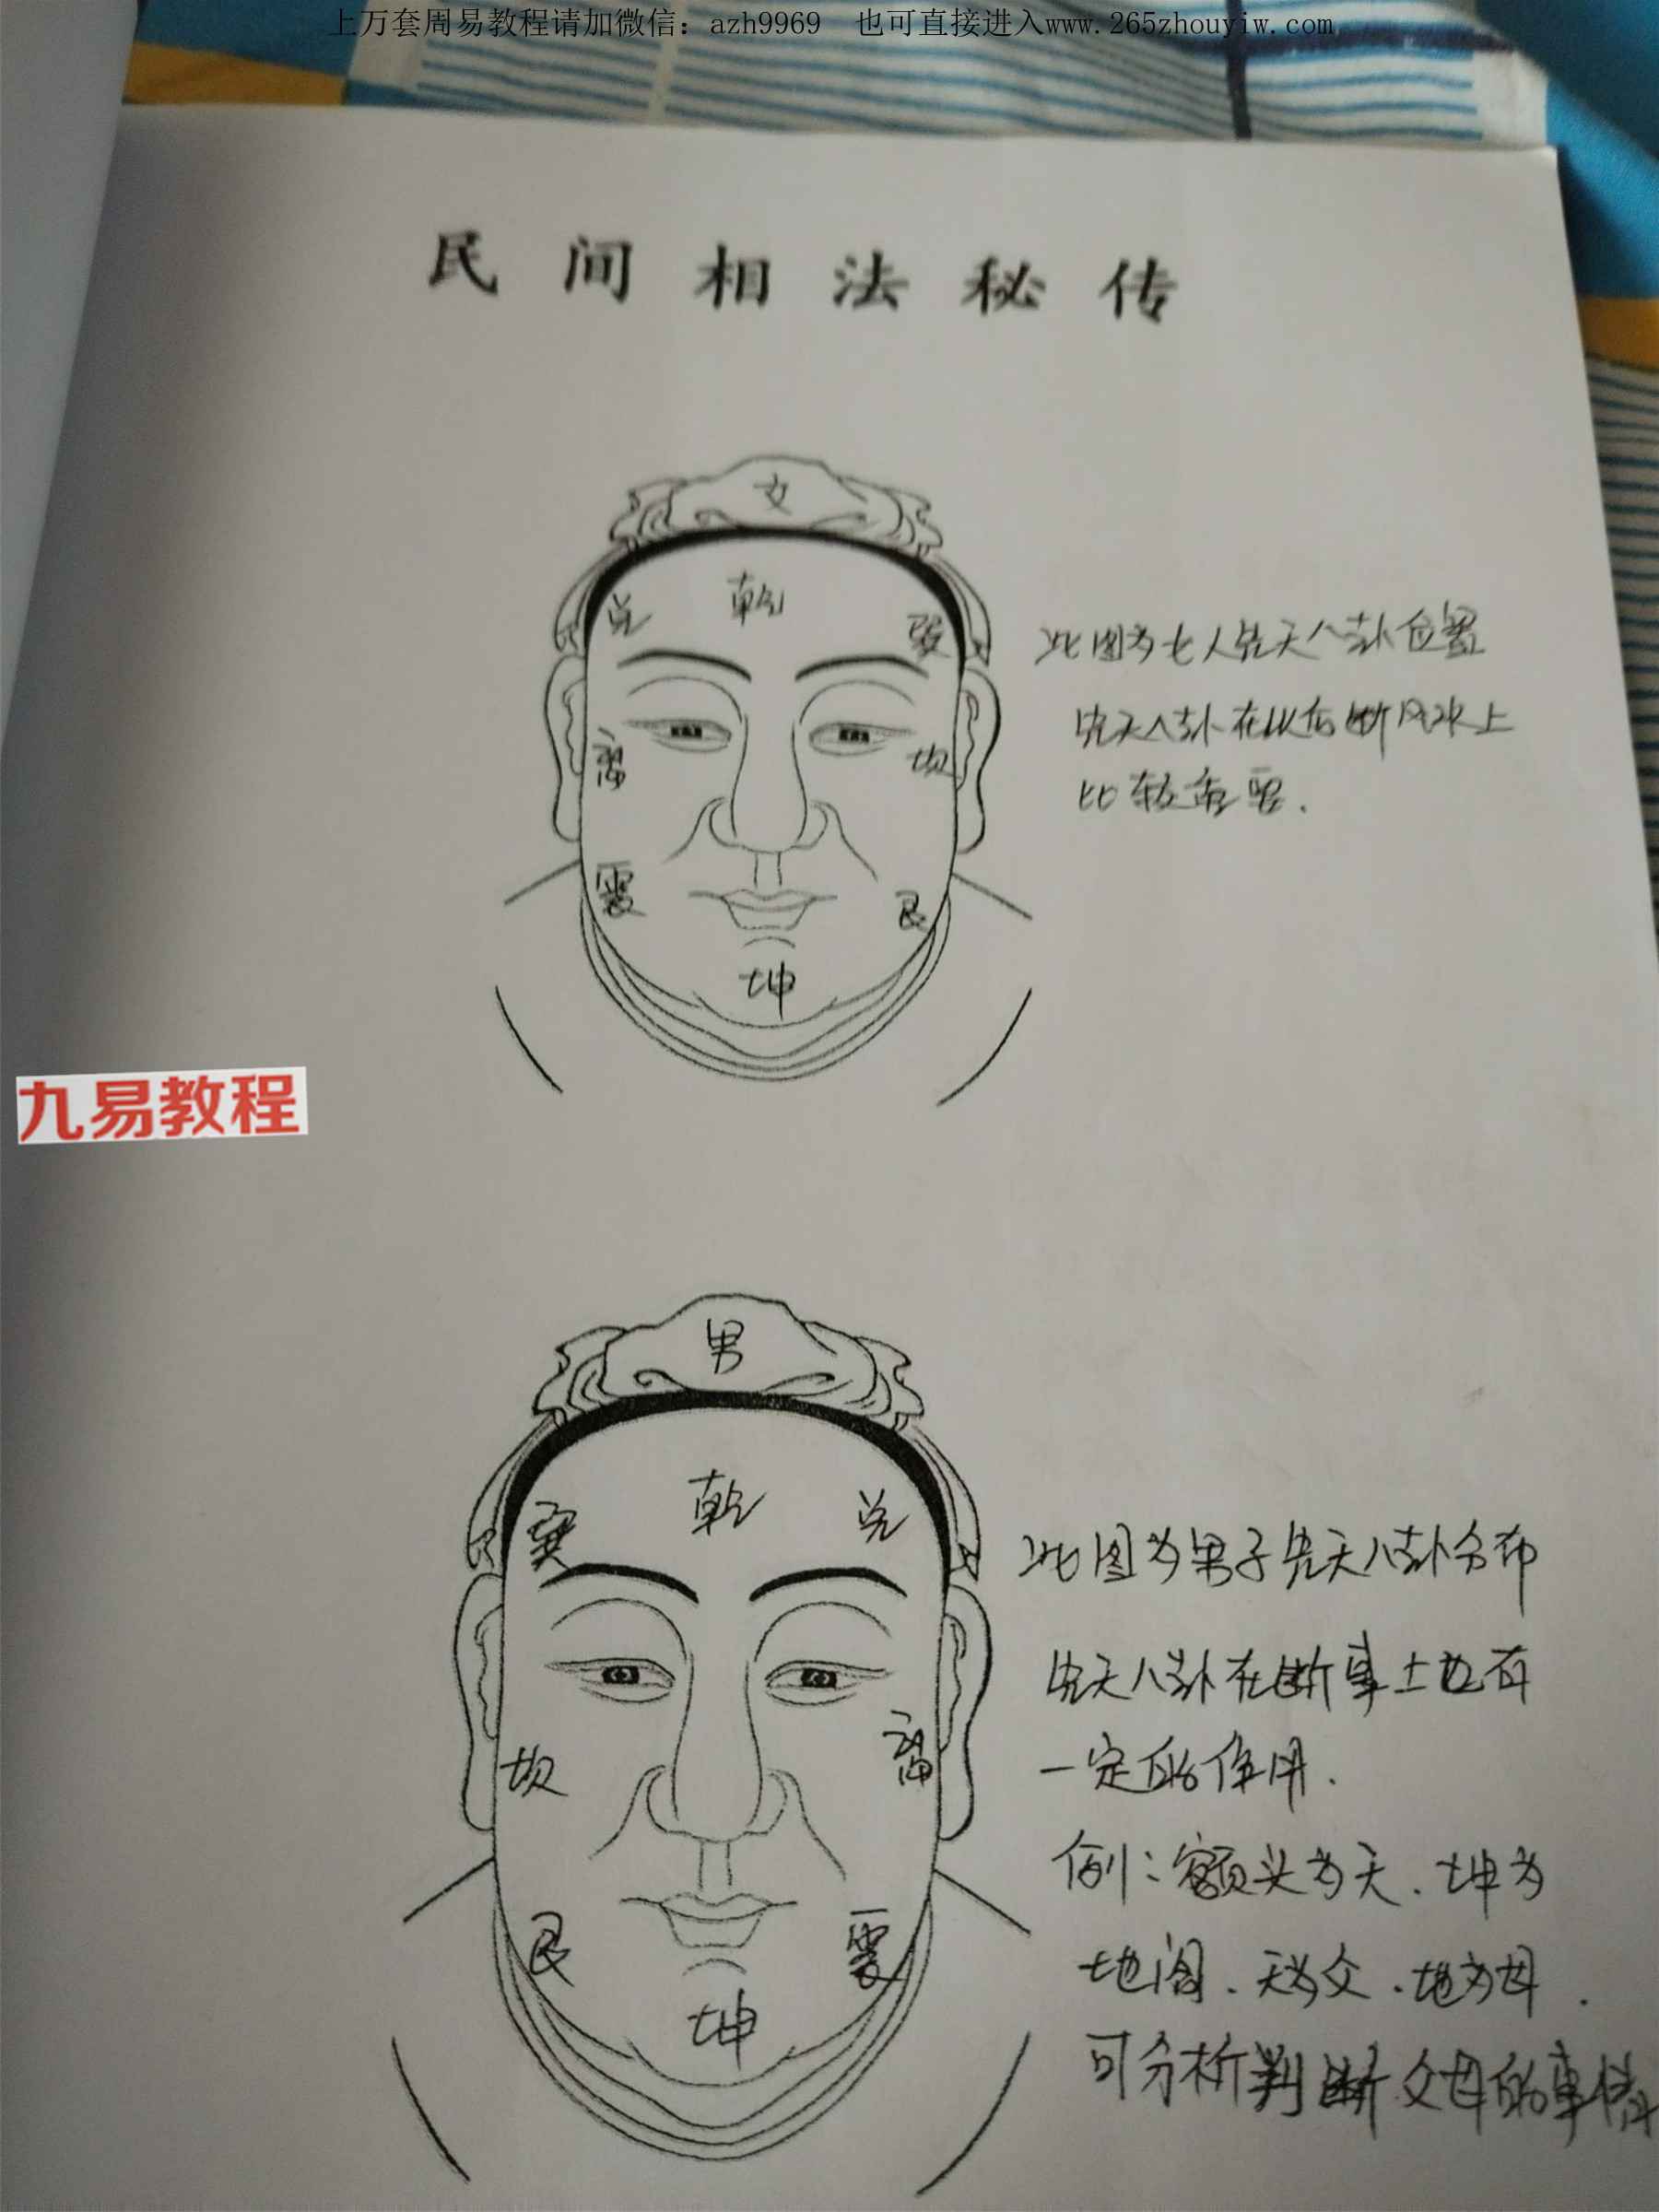 上万套周易教程请加微信：azh9969 也可直接进入www.265zhouyiw.com
民间相法秘传
女
兑 乾 巽
离 坎
震 艮
坤
此图为女人先天八卦位置
先天八卦在以后断风水上
比较重要.
九易教程
男
巽 乾 兑
坎 离
艮 震
坤
此图为男子先天八卦分布
先天八卦在断事上也有
一定的作用.
例：额头为天.坤为
地阁.天为父.地为母.
可分析判断父母的事情